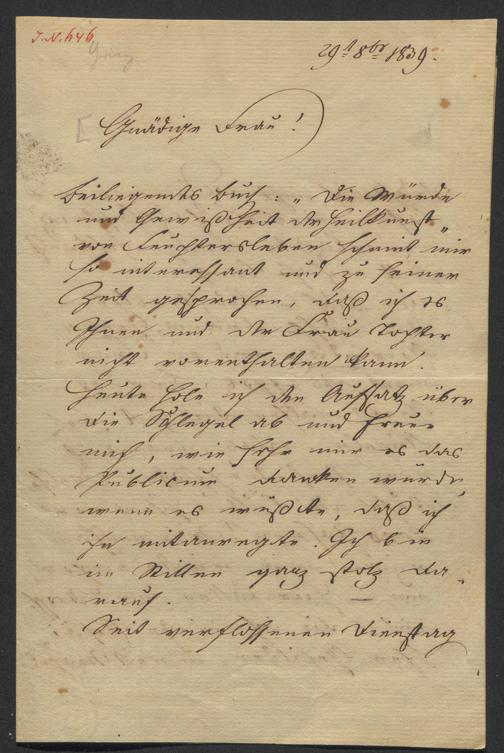 J.N. 646
29t 8br 1839.
Gnädige Frau!
Beiliegendes Buch: „Die Würde
und Gewißheit der Heilkunst"
von Feuchtersleben scheint mir
so interessant und zu seiner
Zeit gesprochen, daß ich es
Ihnen und der Frau Tochter
nicht vorenthalten kann.
Heute hole ich den Aufsatz über
die Schlegel ab und freue
mich, wie sehr mir es das
Publicum danken würde,
wenn es wüßte, daß ich
ihn mitanregte. Ich bin
im Stillen ganz stolz da-
rauf. —
Seit verflossenen Dienstag